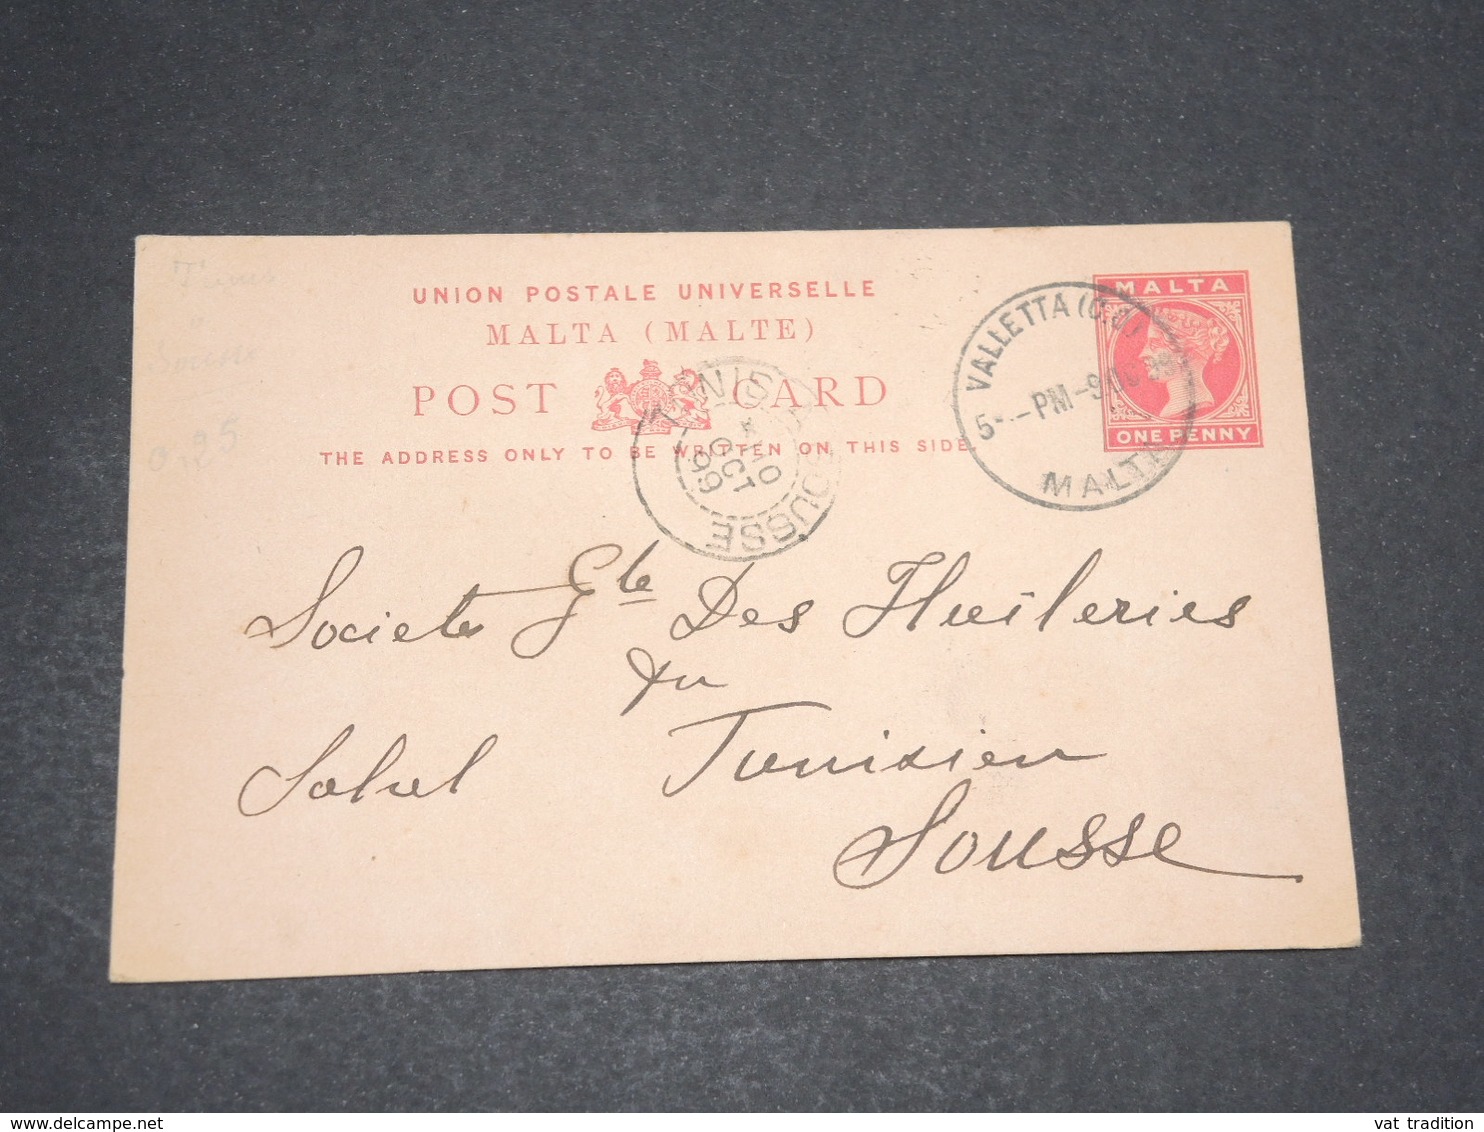 UNION POSTALE UNIVERSELLE
MALTA (MALTE)
POST CARD
THE ADDRESS ONLY TO BE WRITTEN ON THIS SIDE.
MALTA
ONE PENNY
VALLETTA
5 - PM - 9 OC 99
MALTA
TUNIS A SOUSSE
10
OCT
99
Tunis
a
Sousse
0,25
Societe Gle Des Huileries
du
Sahel Tunisien
Sousse
vat tradition